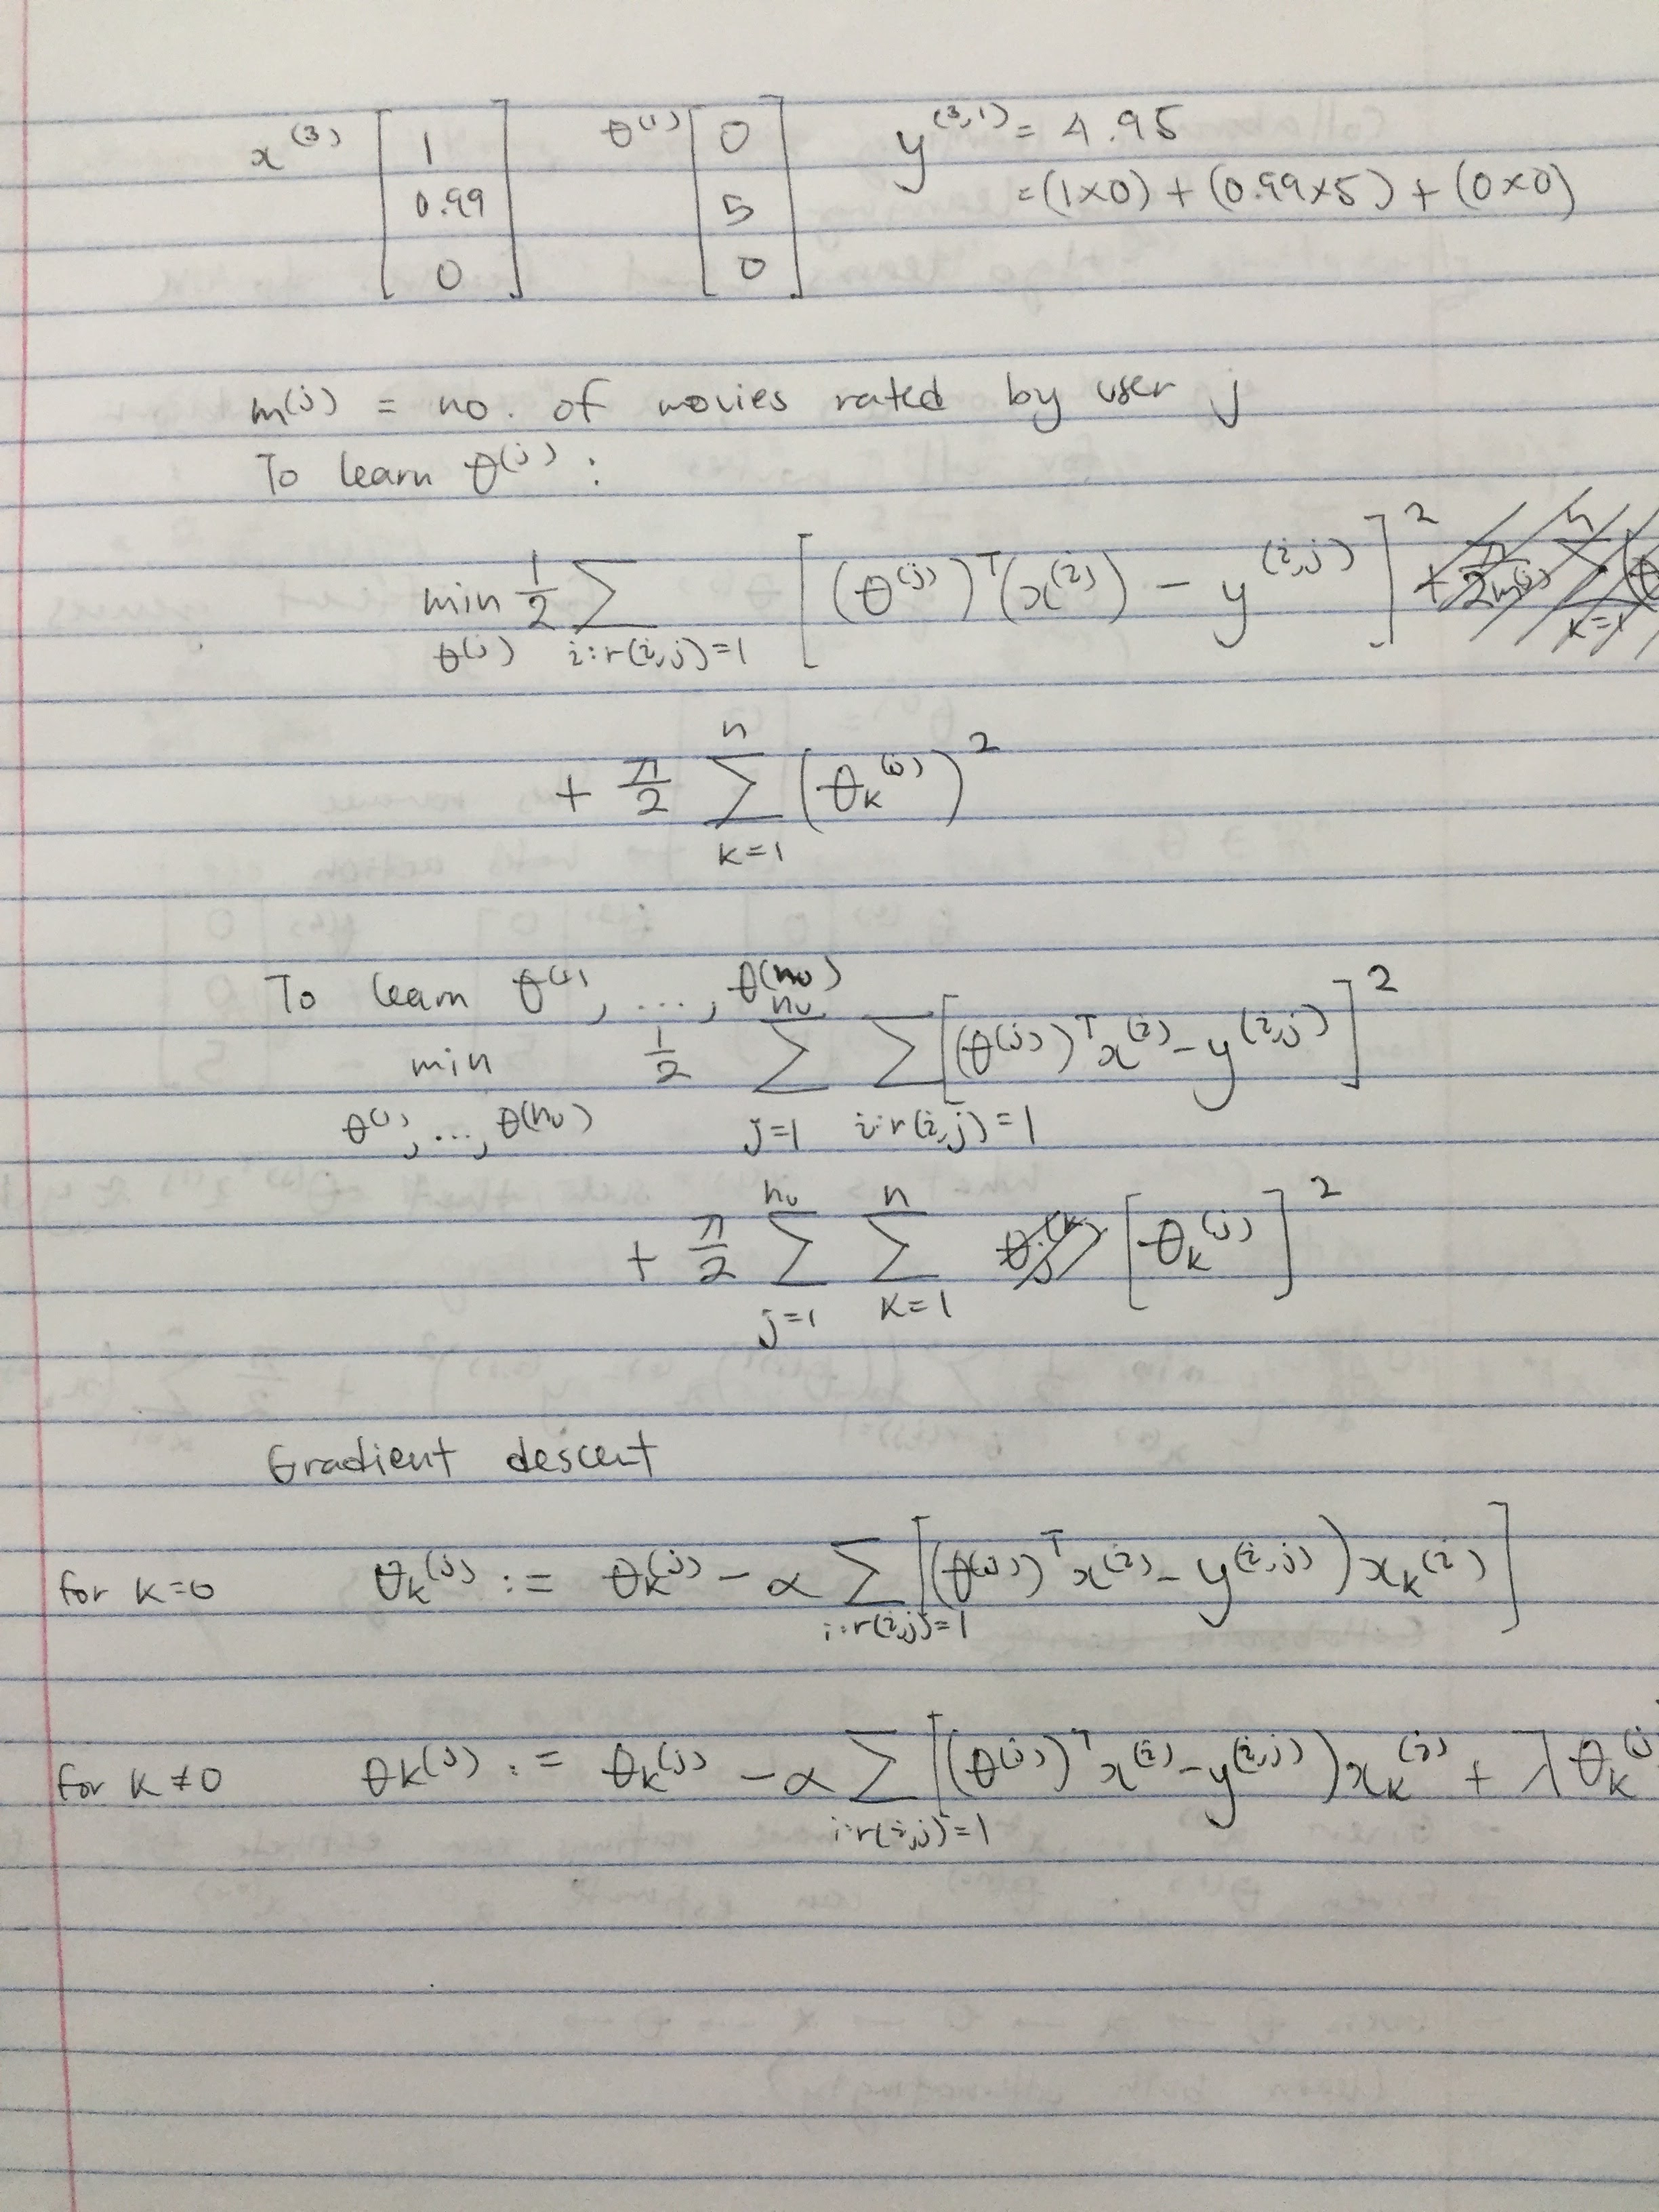 x^(3) [1 0.99 0] θ^(1) [0 5 0] y^(3,1) = 4.95
= (1×0) + (0.99×5) + (0×0)
m(j) = no. of movies rated by user j
To learn θ^(j) :
min_θ(j) 1/2 Σ_{i:r(i,j)=1} [(θ^(j))^T (x^(i)) − y^(i,j)]^2
+ λ/2 Σ_{k=1}^{n} (θ_k^(j))^2
To learn θ^(1), ..., θ^(nu)
min_{θ^(1), ..., θ^(nu)} 1/2 Σ_{j=1}^{nu} Σ_{i:r(i,j)=1} [(θ^(j))^T x^(i) − y^(i,j)]^2
+ λ/2 Σ_{j=1}^{nu} Σ_{k=1}^{n} [θ_k^(j)]^2
Gradient descent
for k=0 θ_k^(j) := θ_k^(j) − α Σ_{i:r(i,j)=1} [(θ^(j))^T x^(i) − y^(i,j)) x_k^(i)]
for k≠0 θ_k^(j) := θ_k^(j) − α Σ_{i:r(i,j)=1} [(θ^(j))^T x^(i) − y^(i,j)) x_k^(i) + λ θ_k^(j